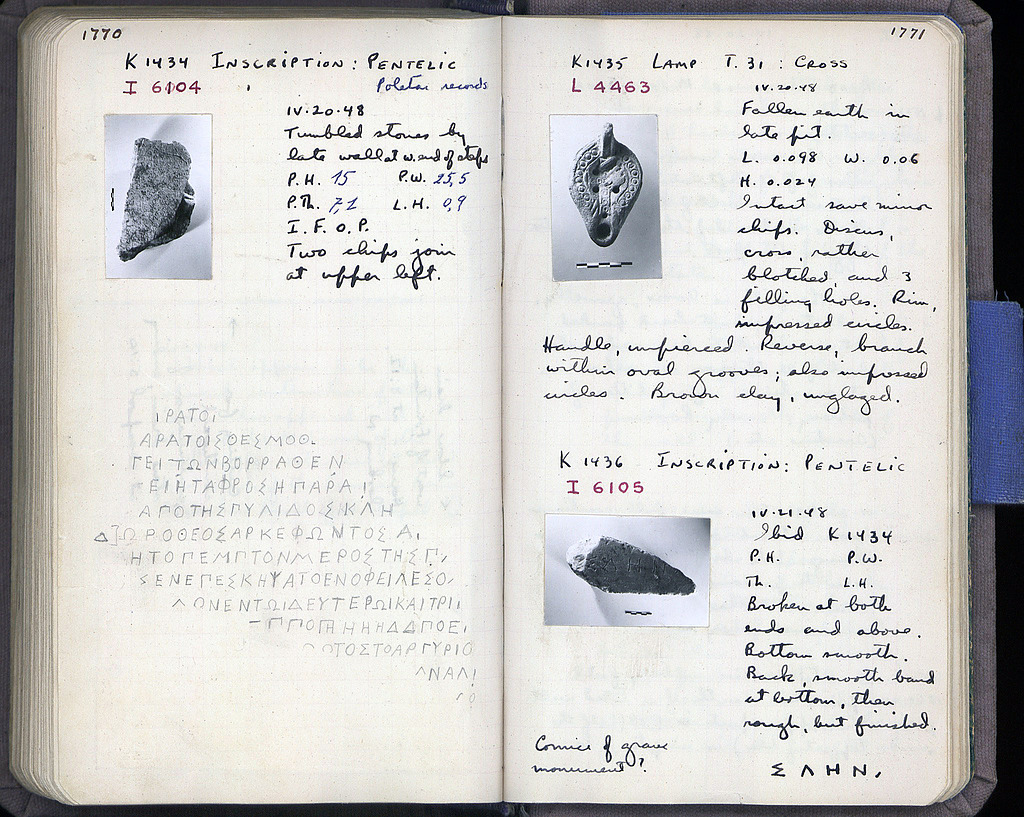 1770
K 1434 INSCRIPTION: PENTELIC
I 6104
Poletai records
IV.20.48
Tumbled stones by
late wall at w. end of steps
P.H. 15 P.W. 25,5
P.Th. 7,1 L.H. 0,9
I.F.O.P.
Two chips join
at upper left.
ΙΡΑΤΟΙ
ΑΡΑΤΟΙΣΘΕΣΜΟΘ
ΓΕΙΤΩΝΒΟΡΡΑΘΕΝ
ΕΙΗΤΑΦΡΟΣΗΠΑΡΑΙ
ΑΠΟΤΗΣΠΥΛΙΔΟΣΚΛΗ
Δ]ΩΡΟΘΕΟΣΑΡΚΕΦΩΝΤΟΣΑ
ΗΤΟΠΕΜΠΤΟΝΜΕΡΟΣΤΗΣΓ
ΣΕΝΕΠΕΣΚΗΨΑΤΟΕΝΟΦΕΙΛΕΣΟ
ΛΟΝΕΝΤΩΙΔΕΥΤΕΡΩΙΚΑΙΤΡΙΙ
ΟΤΟΣΤΟΑΡΓΥΡΙΟ
ΝΑΛΙ
1771
K 1435 LAMP T. 31 : CROSS
L 4463
IV.20.48
Fallen earth in
late pit.
L. 0.098 W. 0.06
H. 0.024
Intact save minor
chips. Discus,
cross, rather
blotched, and 3
filling holes. Rim,
impressed circles.
Handle, unpierced. Reverse, branch
within oval grooves; also impressed
circles. Brown clay, unglazed.
K 1436 INSCRIPTION: PENTELIC
I 6105
IV.21.48
Ibid K 1434
P.H. P.W.
Th. L.H.
Broken at both
ends and above.
Bottom smooth.
Back, smooth band
at bottom, then
rough, but finished.
Cornice of grave
monument?
Σ Λ Η Ν.